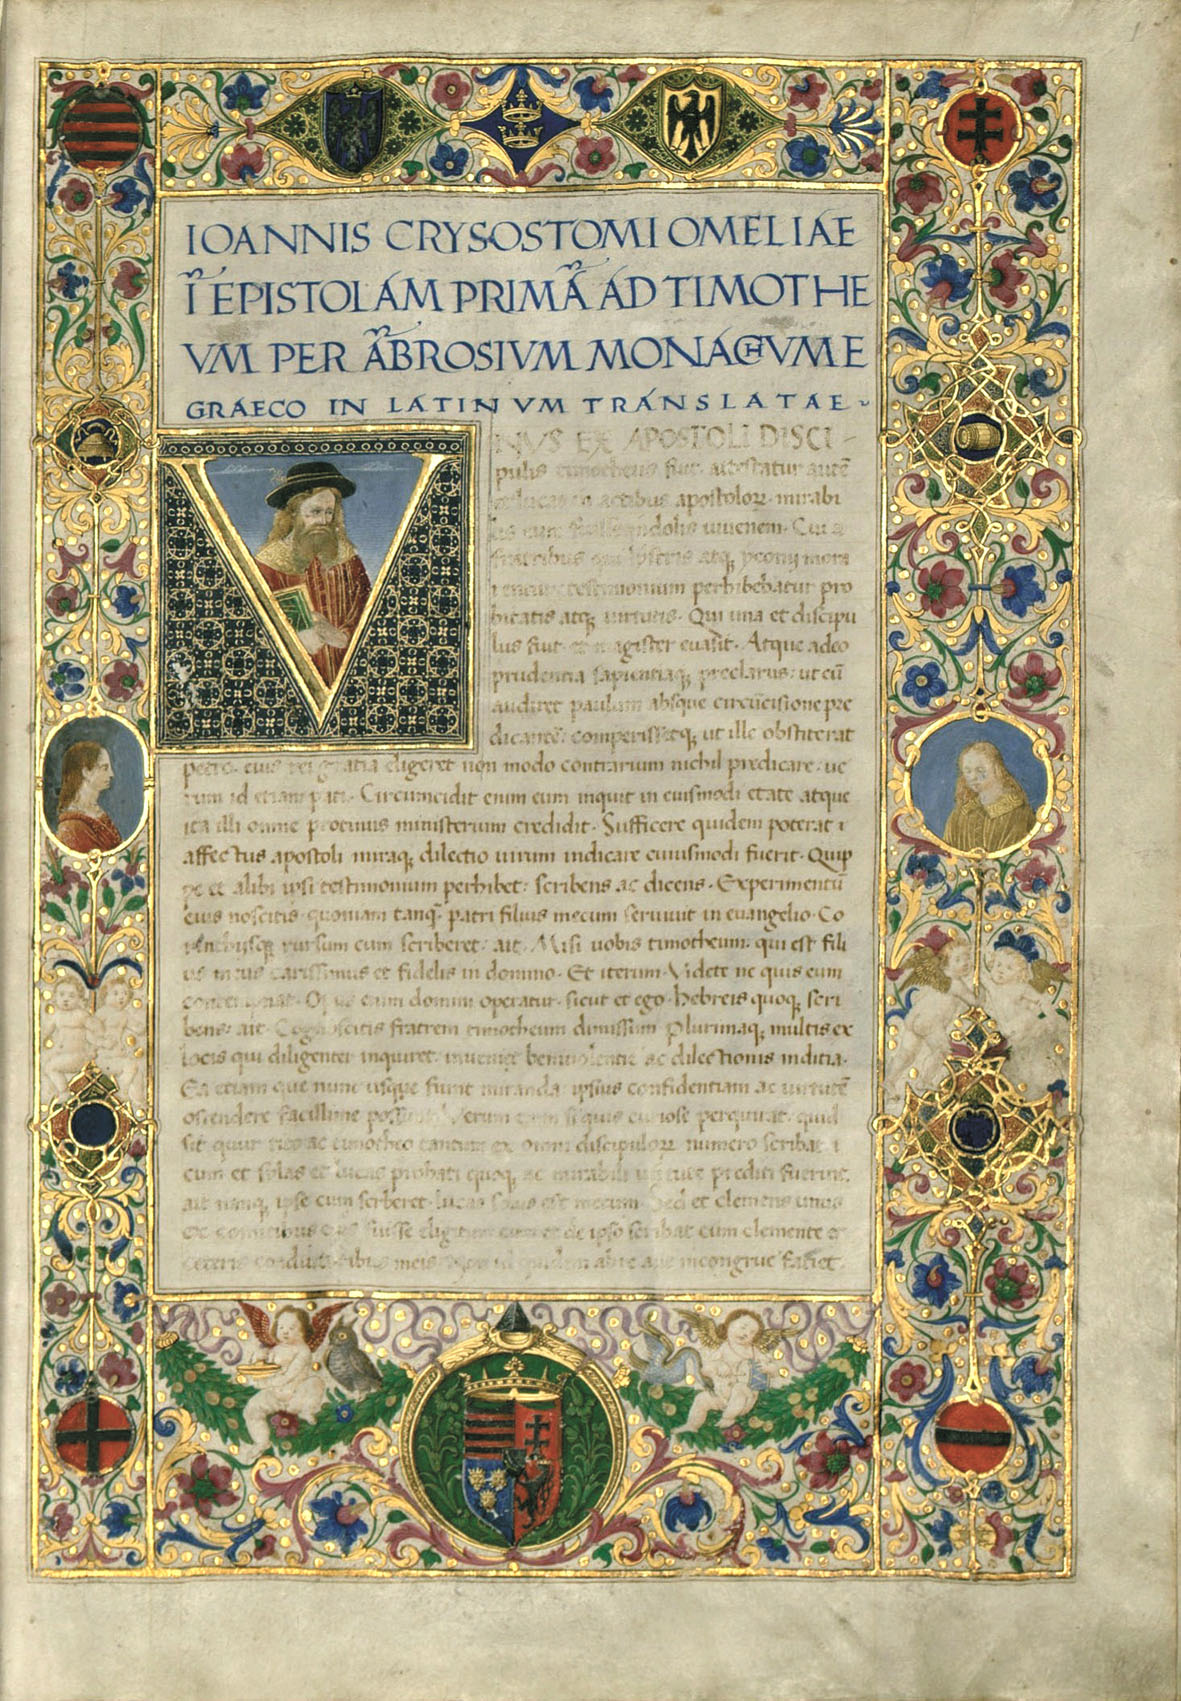 IOANNIS CRYSOSTOMI OMELIAE
Ī EPISTOLAM PRIMĀ AD TIMOTHE
VM PER ĀBROSIVM MONACHVM E
GRAECO IN LATINVM TRANSLATAE
VNVS EX APOSTOLI DISCI
pulis timotheus fuit. attestatur autē
lucas in actibus apostolorꝝ. mirabi
fratribus qui lystris atqꝫ yconij mora
testimonium perhibebatur pro
bitatis atqꝫ uirtutis. Qui una et discipu
lus fuit. et magister euasit. Atque adeo
prudentia sapientiaqꝫ preclarus: ut cū
audiret paulum absque circūcisione pre
dicantē: comperissetqꝫ ut ille obstiterat
petro. eius rei gratia eligeret non modo contrarium nichil predicare. ue
rum id etiam pati. Circumcidit enim eum inquit in eiusmodi etate atque
ita illi omne protinus ministerium credidit. Sufficere quidem poterat i
affectus apostoli miraqꝫ dilectio uirum indicare cuiusmodi fuerit. Quip
pe et alibi ipsi testimonium perhibet: scribens ac dicens. Experimentū
eius noscitis. quoniam tanqꝫ patri filius mecum seruiuit in euangelio. Co
rinthijsqꝫ rursum cum scriberet: ait. Misi uobis timotheum: qui est fili
us meus carissimus et fidelis in domino. Et iterum. Videte ne quis eum
contemnat. Opus enim domini operatur. sicut et ego. Hebreis quoqꝫ scri
bens: ait. Cognoscitis fratrem timotheum dimissum Plurimaqꝫ multis ex
locis qui diligenter inquiret. inueniet beniuolentie ac dilectionis inditia.
Ea etiam que nunc usque fiunt miranda: ipsius confidentiam ac uirtutē
ostendere facillime possunt. Verum si quis curiose perquirat: quid
sit quur ac timotheo tantum ex omni discipulorꝝ numero scribat:
cum et sylas et lucas probati quoqꝫ ac mirabili uirtute prediti fuerint.
ait namqꝫ ipse cum scriberet. lucas solus est mecum. Sed et clemens unus
ex comitibus eius fuisse de ipso scribat cum clemente et
ceteris meis. incongrue faciet.